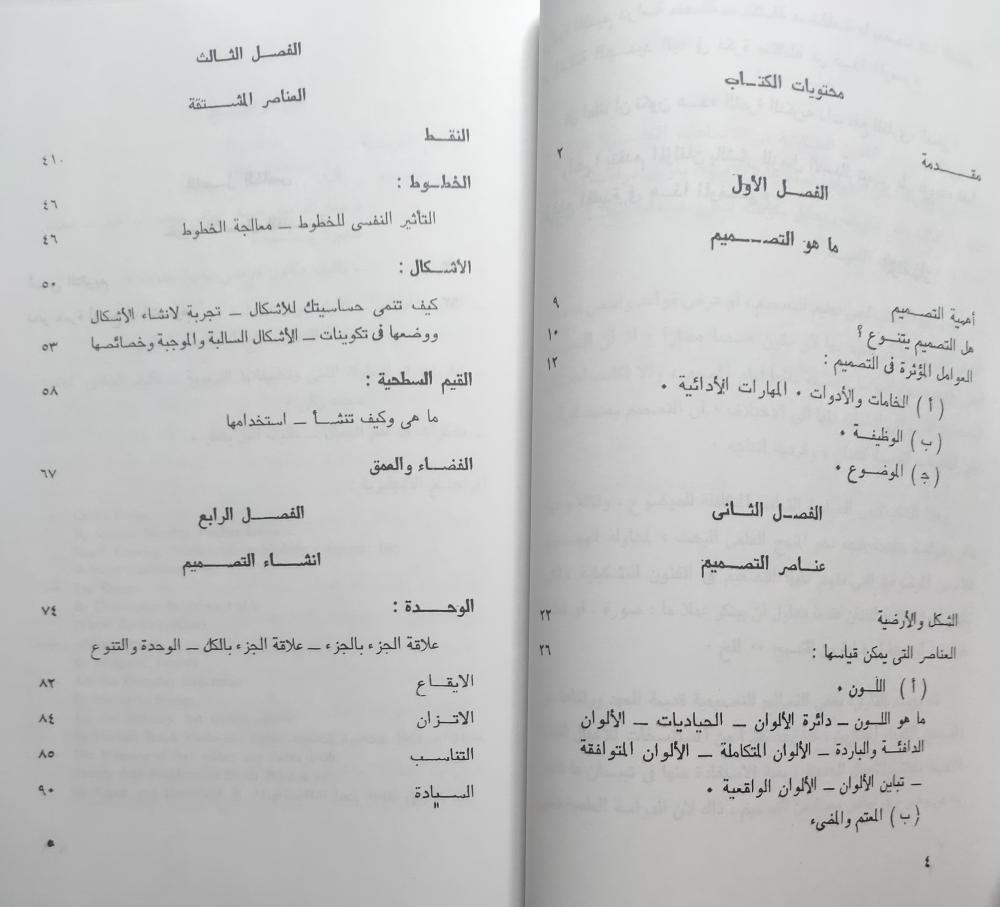 محتويات الكتاب
مقدمة ٢
الفصل الأول
ما هو التصميم
أهمية التصميم ٩
هل التصميم يتنوع ؟ ١٠
العوامل المؤثرة فى التصميم : ١٢
( أ ) الخامات والأدوات . المهارات الأدائية .
( ب ) الوظيفة .
( ج ) الموضوع .
الفصل الثانى
عناصر التصميم
الشكل والأرضية ٢٢
العناصر التى يمكن قياسها : ٢٦
( أ ) اللون .
ما هو اللون – دائرة الألوان – الحياديات – الألوان
الدافئة والباردة – الألوان المتكاملة – الألوان المتوافقة
– تباين الألوان – الألوان الواقعية .
( ب ) المعتم والمضىء
٤
الفصل الثالث
العناصر المشتقة
النقط ٤١٠
الخطوط : ٤٦
التأثير النفسى للخطوط – معالجة الخطوط ٤٦
الأشكال : ٥٠
كيف تنمى حساسيتك للأشكال – تجربة لانشاء الأشكال
ووضعها فى تكوينات – الأشكال السالبة والموجبة وخصائصها ٥٣
القيم السطحية : ٥٨
ما هى وكيف تنشأ – استخدامها
الفضاء والعمق ٦٧
الفصل الرابع
انشاء التصميم
الوحدة : ٧٤
علاقة الجزء بالجزء – علاقة الجزء بالكل – الوحدة والتنوع
الايقاع ٨٢
الاتزان ٨٤
التناسب ٨٥
السيادة ٩٠
٥